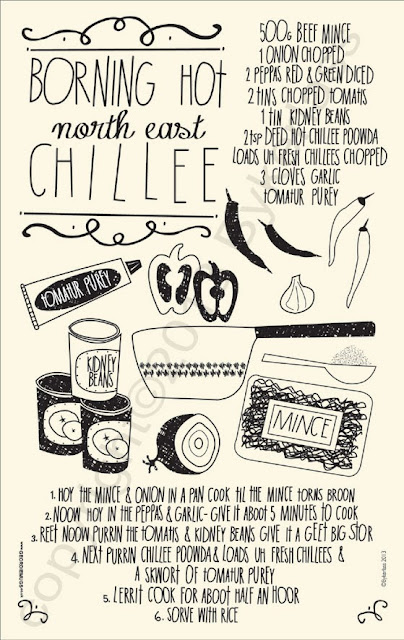 BORNING HOT
north east
CHILLEE
500g BEEF MINCE
1 ONION CHOPPED
2 PEPPAS RED & GREEN DICED
2 TINS CHOPPED TOMATIS
1 TIN KIDNEY BEANS
2 tsp DEED HOT CHILLEE POOWDA
LOADS UH FRESH CHILLEES CHOPPED
3 CLOVES GARLIC
TOMATUR PUREY
TOMATUR PUREY
KIDNEY
BEANS
MINCE
1. HOY THE MINCE & ONION IN A PAN COOK TIL THE MINCE TORNS BROON
2. NOOW HOY IN THE PEPPA'S & GARLIC- GIVE IT ABOOT 5 MINUTES TO COOK
3. REET NOOW PURRIN THE TOMATIS & KIDNEY BEANS GIVE IT A GEET BIG STOR
4. NEXT PURRIN CHILLEE POOWDA & LOADS UH FRESH CHILLEES &
A SKWORT OF TOMATUR PUREY
5. LERRIT COOK FOR ABOOT HALF AN HOOR
6. SORVE WITH RICE